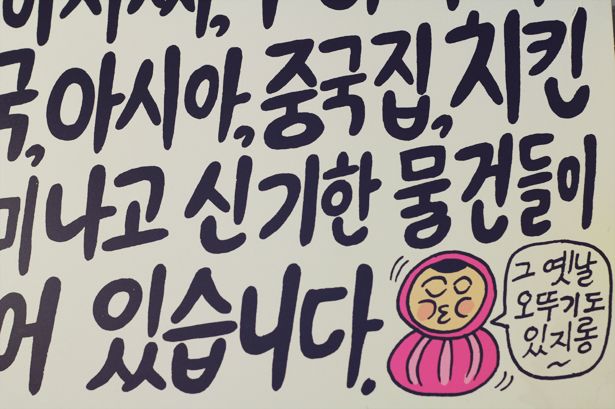 국,아시아,중국집,치킨
미나고 신기한 물건들이
어 있습니다.
그 옛날
오뚜기도
있지롱
~